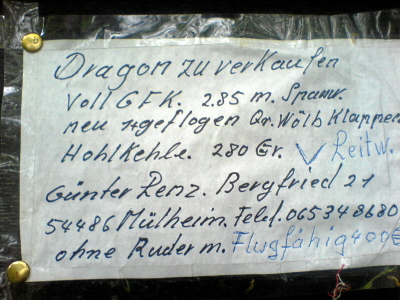 Dragon zu verkaufen
Voll GFK. 2.85 m. Spannw.
neu 1x geflogen Qr. Wölbklappen
Hohlkehle. 280 Gr. V Leitw.
Günter Lenz. Bergfried 21
54486 Mülheim. Telef. 06534 8680
ohne Ruder m. Flugfähig 400€